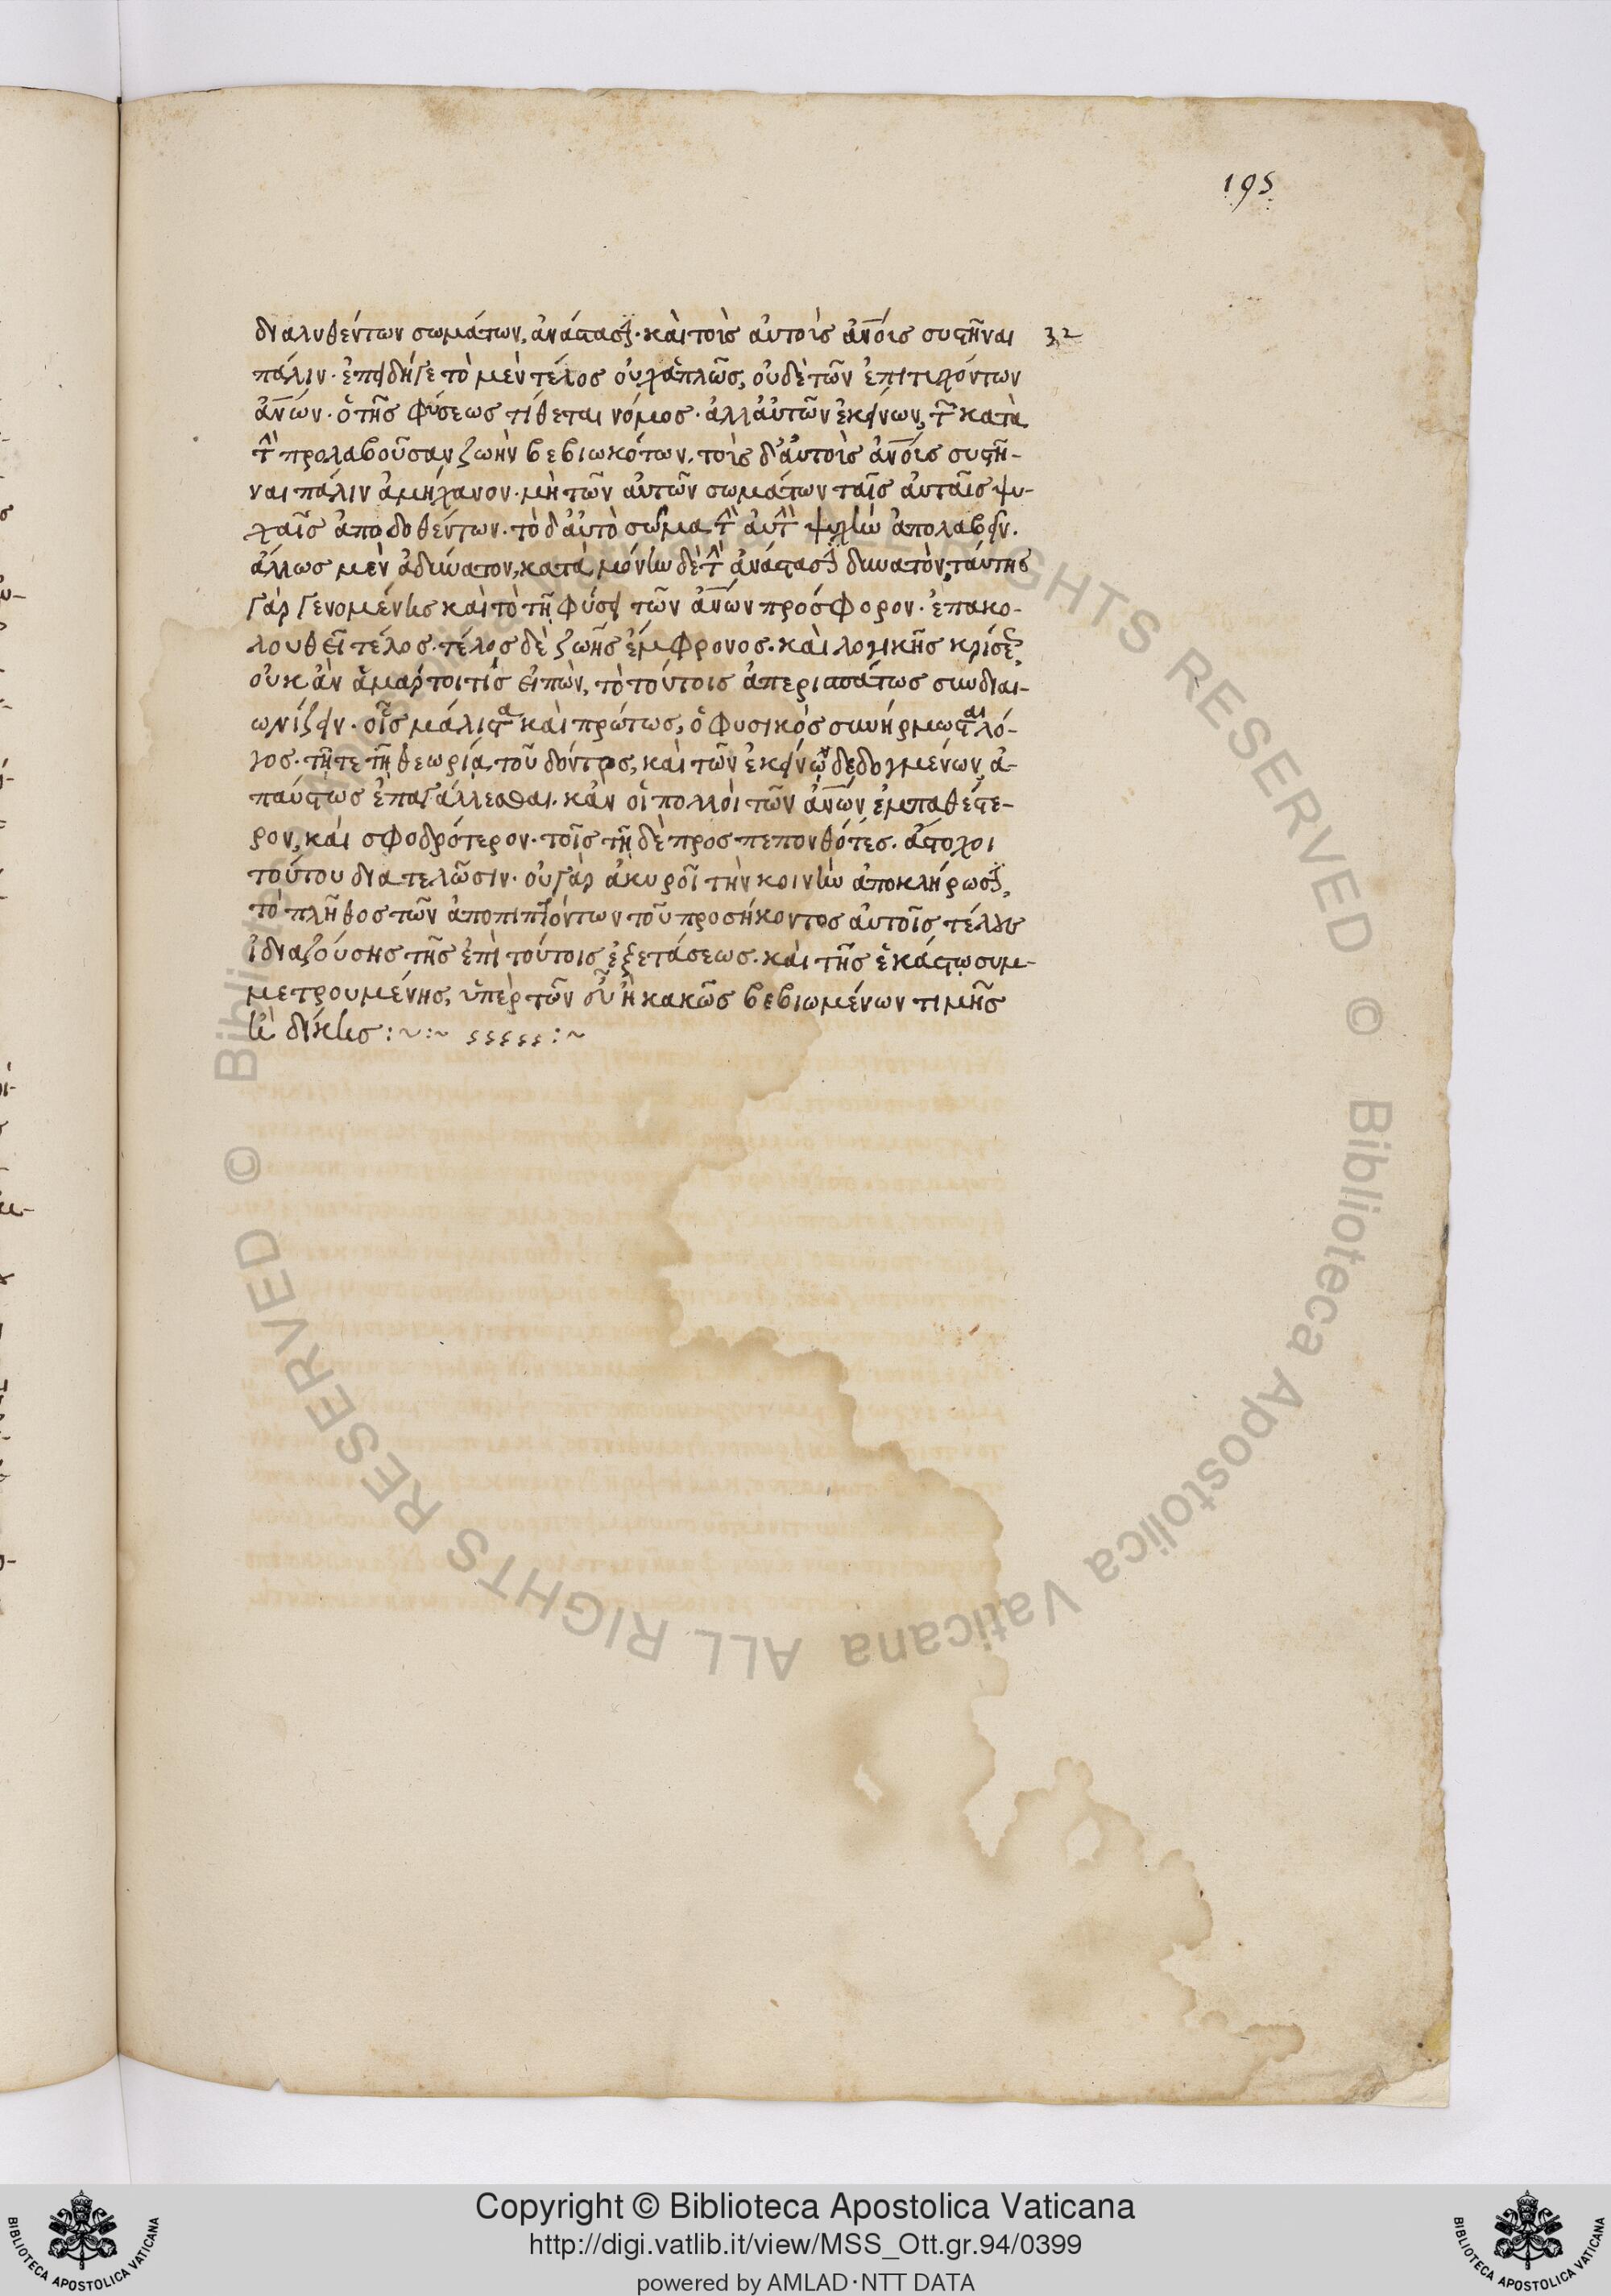 195
διαλυθέντων σωμάτων, ἀνάστασιν· καὶ τοὺς αὐτοὺς ἀνο͞υς συστῆναι 32
πάλιν· ἐπειδήγε τὸ μὲν τέλος οὐχ ἁπλῶς, οὐδὲ τῶν ἐπιτυχόντων
ἀν͞ων· ὁ τῆς φύσεως τίθεται νόμος· ἀλλ αὐτῶν ἐκείνων, τῶν κατὰ
τὴν προλαβοῦσαν ζωὴν βεβιωκότων, τοὺς δ' αὐτοὺς ἀνο͞υς συστῆ-
ναι πάλιν ἀμήχανον· μὴ τῶν αὐτῶν σωμάτων ταῖς αὐταῖς ψυ-
χαῖς ἀποδοθέντων· τὸ δ' αὐτὸ σῶμα τὴν αὐτὴν ψυχὴν ἀπολαβεῖν·
ἄλλως μὲν ἀδύνατον, κατὰ μόνην δὲ τὴν ἀνάστασιν δυνατὸν, ταύτης
γὰρ γενομένης καὶ τὸ τῇ φύσει τῶν ἀν͞ων πρόσφορον· ἐπακο-
λουθεῖ τέλος· τέλος δὲ ζωῆς ἔμφρονος· καὶ λογικῆς κρίσεως,
οὐκ ἂν ἁμάρτοι τίς εἰπὼν, τὸ τούτοις ἀπερισπάστως συνδιαι-
ωνίζειν· οἷς μάλιστα καὶ πρώτως, ὁ φυσικὸς συνήρμωσται λό-
γος· τῇ τε τῇ θεωρίᾳ, τοῦ δόντος, καὶ τῶν ἐκείνῳ δεδογμένων, ἀ-
παύστως ἐπαγάλλεσθαι. κἂν οἱ πολλοὶ τῶν ἀν͞ων ἐμπαθέστε-
ρον, καὶ σφοδρότερον· τοῖς τῇ δὲ προσπεπονθότες. ἄστοχοι
τούτου διατελῶσιν· οὐ γὰρ ἀκυροῖ τὴν κοινὴν ἀποκλήρωσιν,
τὸ πλῆθος τῶν ἀποπιπτόντων τοῦ προσήκοντος αὐτοῖς τέλους
ἰδιαζούσης τῆς ἐπὶ τούτοις ἐξετάσεως. καὶ τῆς ἑκάστῳ συμ-
μετρουμένης, ὑπὲρ τῶν εὖ ἢ κακῶς βεβιωμένων τιμῆς
ἢ δίκης :~ :~ :~
Copyright © Biblioteca Apostolica Vaticana
http://digi.vatlib.it/view/MSS_Ott.gr.94/0399
powered by AMLAD·NTT DATA
BIBLIOTECA APOSTOLICA VATICANA
BIBLIOTECA APOSTOLICA VATICANA
© Biblioteca Apostolica Vaticana ALL RIGHTS RESERVED
© Biblioteca Apostolica Vaticana ALL RIGHTS RESERVED